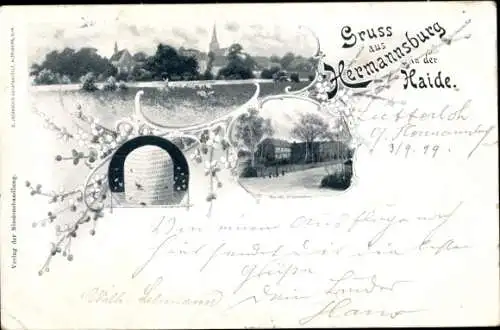 Gruss
aus
Hermannsburg
in der
Haide.
Verlag der Missionshandlung.
Lutterloh
b/ Hermannsburg
3/9.99.
Von einem Ausfluge nach
hier sendet Dir die besten
Grüße
Dein Bruder
Hans
Wilh. Lehmann